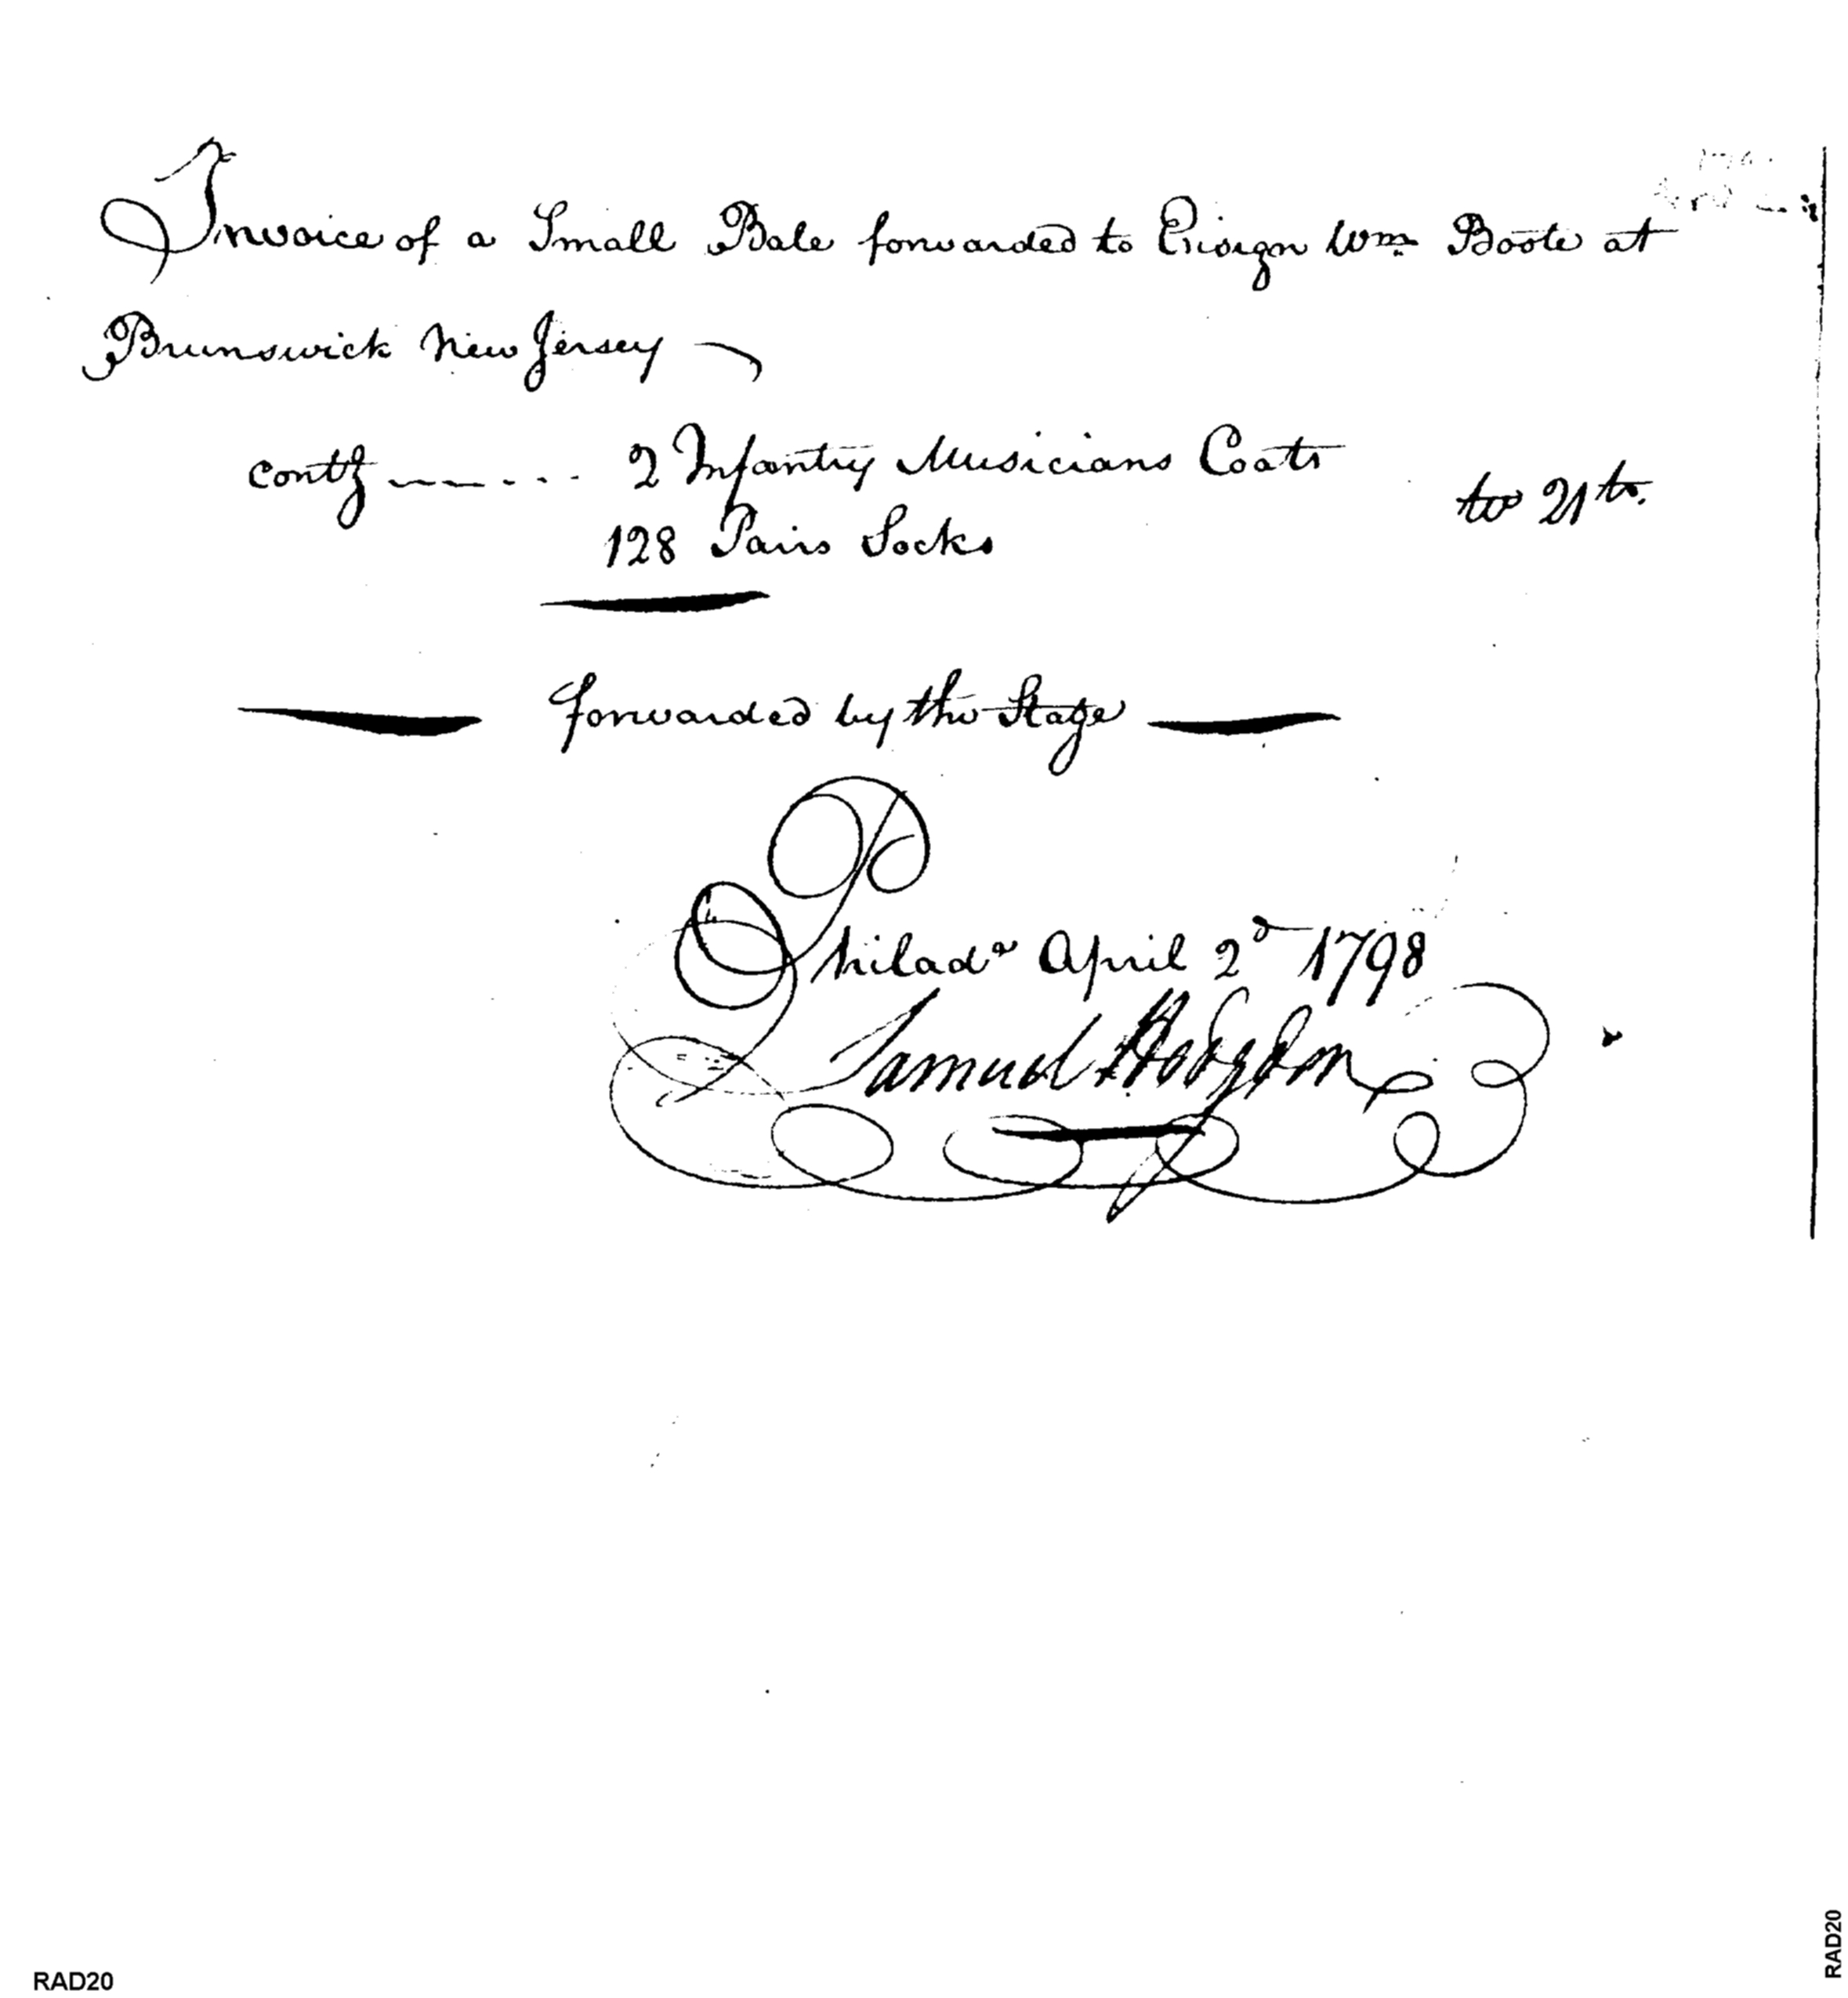 Invoice of a Small Bale forwarded to Ensign Wm Boote at
Brunswick New Jersey
contg ------- 2 Infantry Musicians Coats
128 Pairs Socks
forwarded by the Stage
Philada April 2d 1798
Samuel Hodgdon
RAD20
RAD20